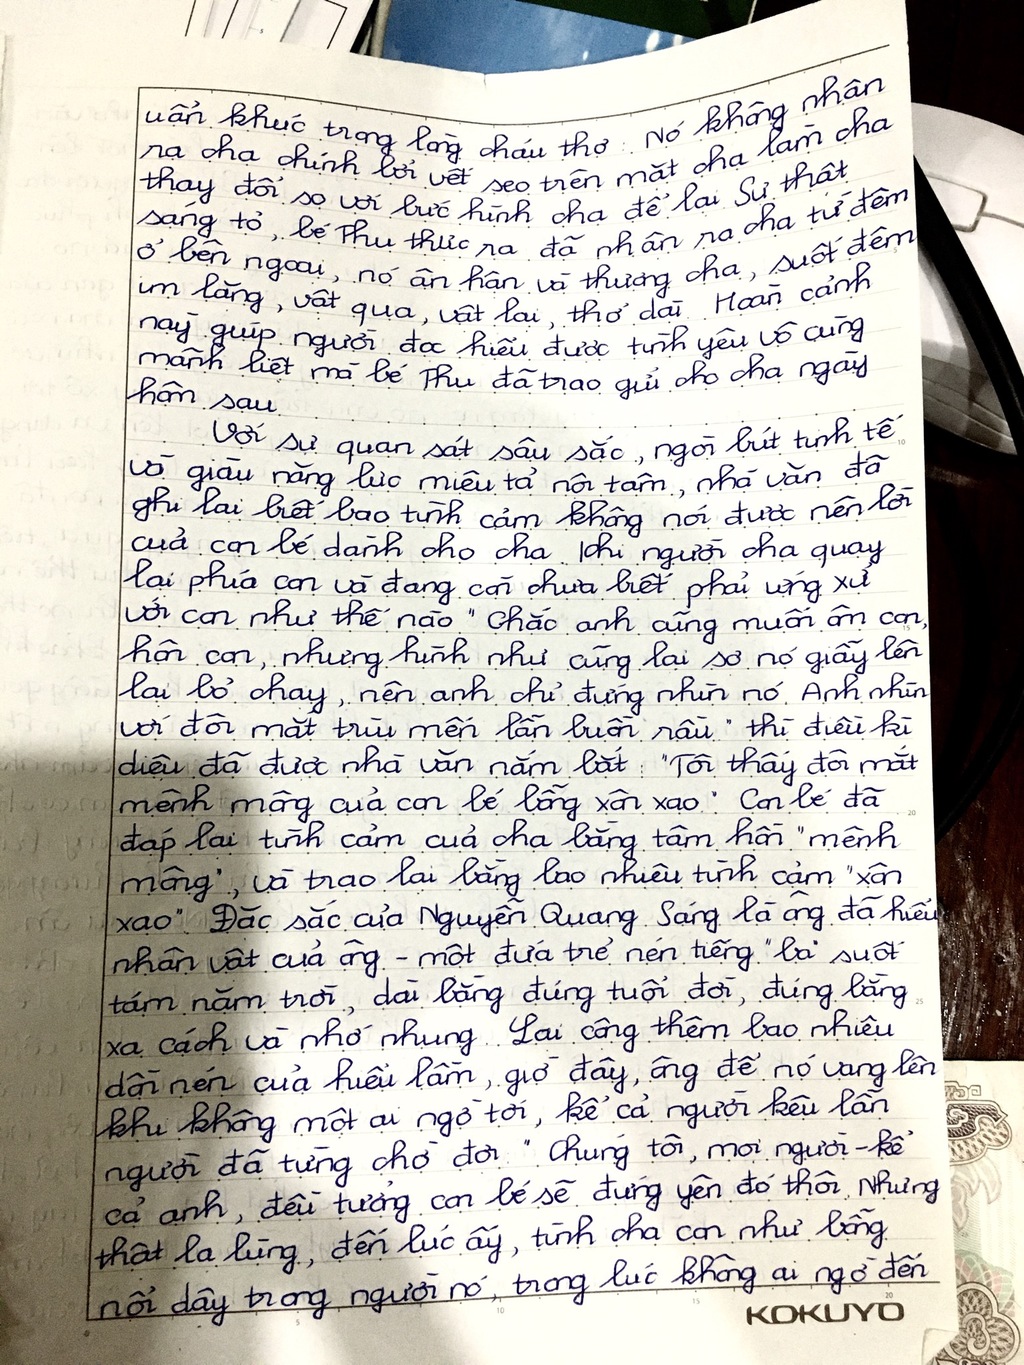 uẩn khúc trong lòng cháu thơ. Nó không nhận
ra cha chính bởi vết sẹo trên mặt cha làm cha
thay đổi so với bức hình cha để lại. Sự thật
sáng tỏ, bé Thu thực ra đã nhận ra cha từ đêm
ở bên ngoại, nó ân hận và thương cha, suốt đêm
im lặng, vật qua, vật lại, thở dài. Hoàn cảnh
này giúp người đọc hiểu được tình yêu vô cùng
mãnh liệt mà bé Thu đã trao gửi cho cha ngày
hôm sau.
Với sự quan sát sâu sắc, ngòi bút tinh tế
và giàu năng lực miêu tả nội tâm, nhà văn đã
ghi lại biết bao tình cảm không nói được nên lời
của con bé dành cho cha. Khi người cha quay
lại phía con và đang còn chưa biết phải ứng xử
với con như thế nào "Chắc anh cũng muốn ôm con,
hôn con, nhưng hình như cũng lại sợ nó giẫy lên
lại bỏ chạy, nên anh chỉ đứng nhìn nó. Anh nhìn
với đôi mắt trìu mến lẫn buồn rầu" thì điều kì
diệu đã được nhà văn nắm bắt: "Tôi thấy đôi mắt
mênh mông của con bé bỗng xôn xao". Con bé đã
đáp lại tình cảm của cha bằng tâm hồn "mênh
mông", và trao lại bằng bao nhiêu tình cảm "xôn
xao". Đặc sắc của Nguyễn Quang Sáng là ông đã hiểu
nhân vật của ông - một đứa trẻ nén tiếng "ba" suốt
tám năm trời, dài bằng đúng tuổi đời, đúng bằng
xa cách và nhớ nhung. Lại cộng thêm bao nhiêu
dồn nén của hiểu lầm, giờ đây, ông để nó vang lên
khi không một ai ngờ tới, kể cả người kêu lẫn
người đã từng chờ đợi "Chúng tôi, mọi người - kể
cả anh, đều tưởng con bé sẽ đứng yên đó thôi. Nhưng
thật lạ lùng, đến lúc ấy, tình cha con như bỗng
nổi dậy trong người nó, trong lúc không ai ngờ đến
KOKUYO